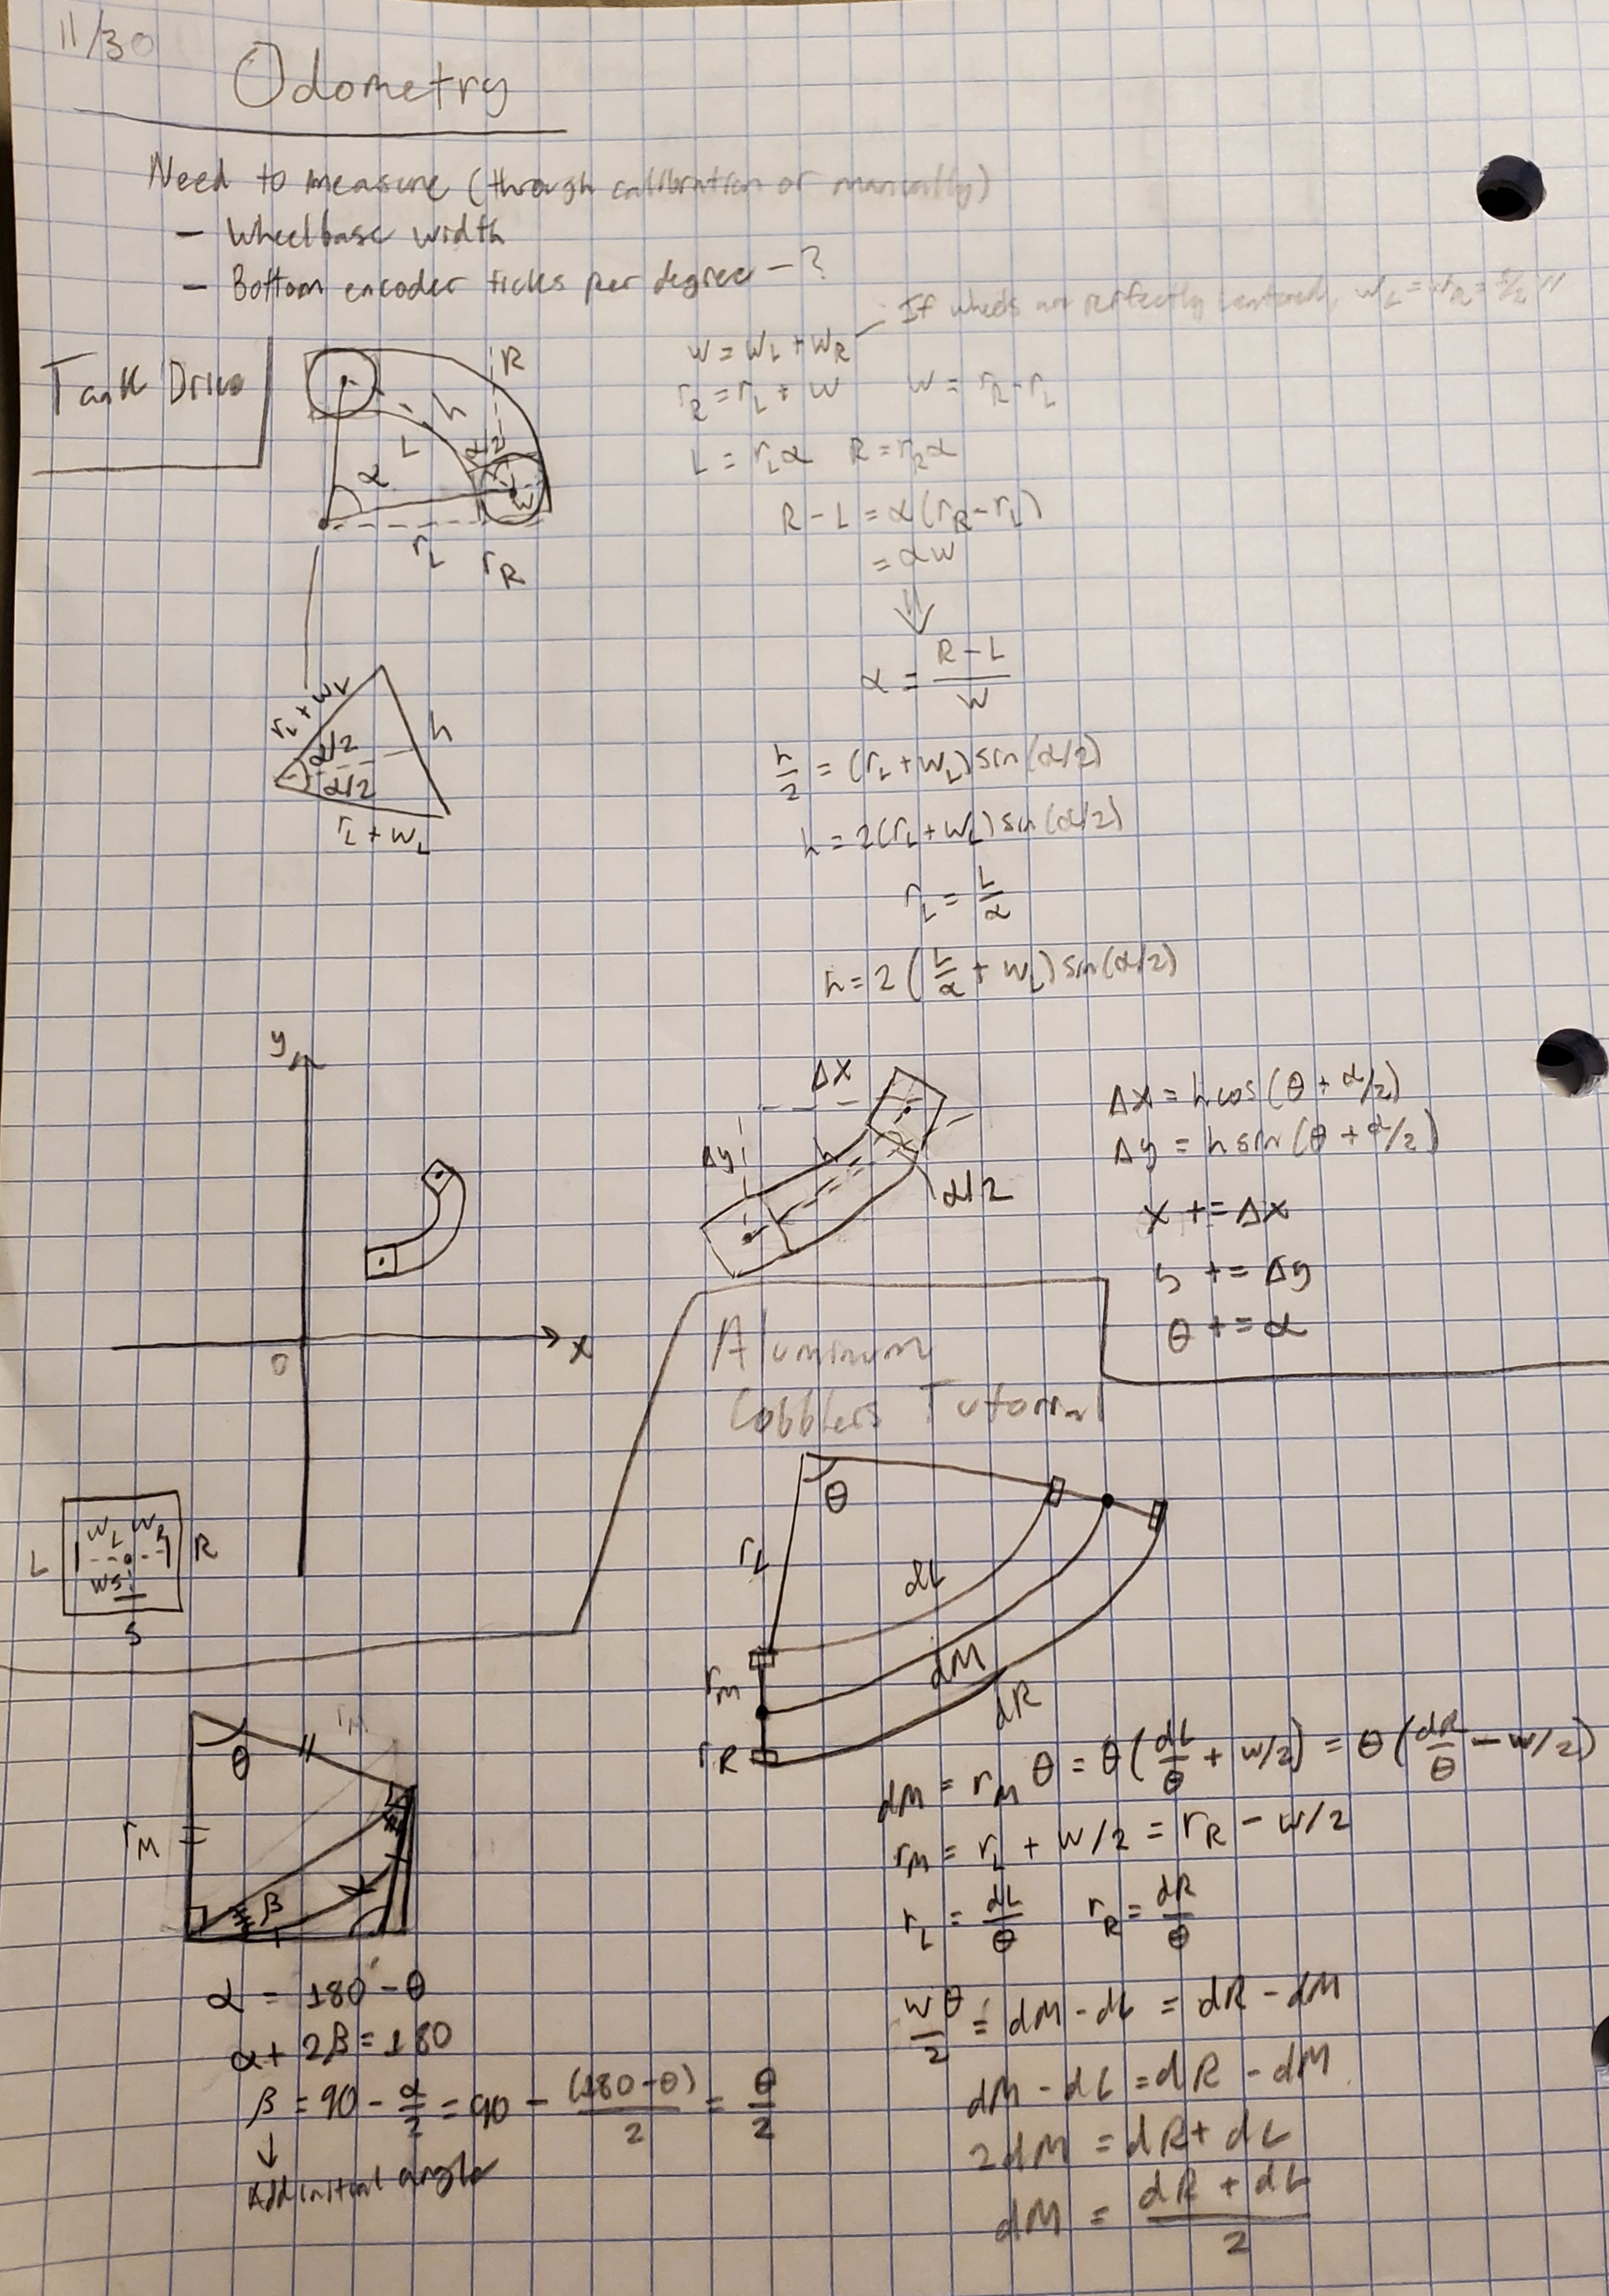 11/30
Odometry
Need to measure (through calibration or manually)
- Wheelbase width
- Bottom encoder ticks per degree - ?
If wheels are perfectly centered, w_L = w_R = w/2
Tank Drive
R
h
L
α/2
α
w
r_L
r_R
w = w_L + w_R
r_R = r_L + w    w = r_R - r_L
L = r_L α    R = r_R α
R - L = α(r_R - r_L)
= αw
⇓
α = (R - L)/w
r_L + w_L
α/2
α/2
h
r_L + w_L
h/2 = (r_L + w_L) sin(α/2)
h = 2(r_L + w_L) sin(α/2)
r_L = L/α
h = 2(L/α + w_L) sin(α/2)
y
x
0
Δx
Δy
h
α/2
Δx = h cos(θ + α/2)
Δy = h sin(θ + α/2)
x += Δx
y += Δy
θ += α
L
w_L w_R
R
w_S
S
Aluminum
Cobblers Tutorial
θ
r_L
dL
r_M
dM
r_R
dR
dM = r_M θ = θ(dL/θ + w/2) = θ(dR/θ - w/2)
r_M = r_L + w/2 = r_R - w/2
r_L = dL/θ    r_R = dR/θ
wθ/2 = dM - dL = dR - dM
dM - dL = dR - dM
2dM = dR + dL
dM = (dR + dL)/2
θ
r_M
r_M
β
α = 180 - θ
α + 2β = 180
β = 90 - α/2 = 90 - (180 - θ)/2 = θ/2
↓
Add initial angle